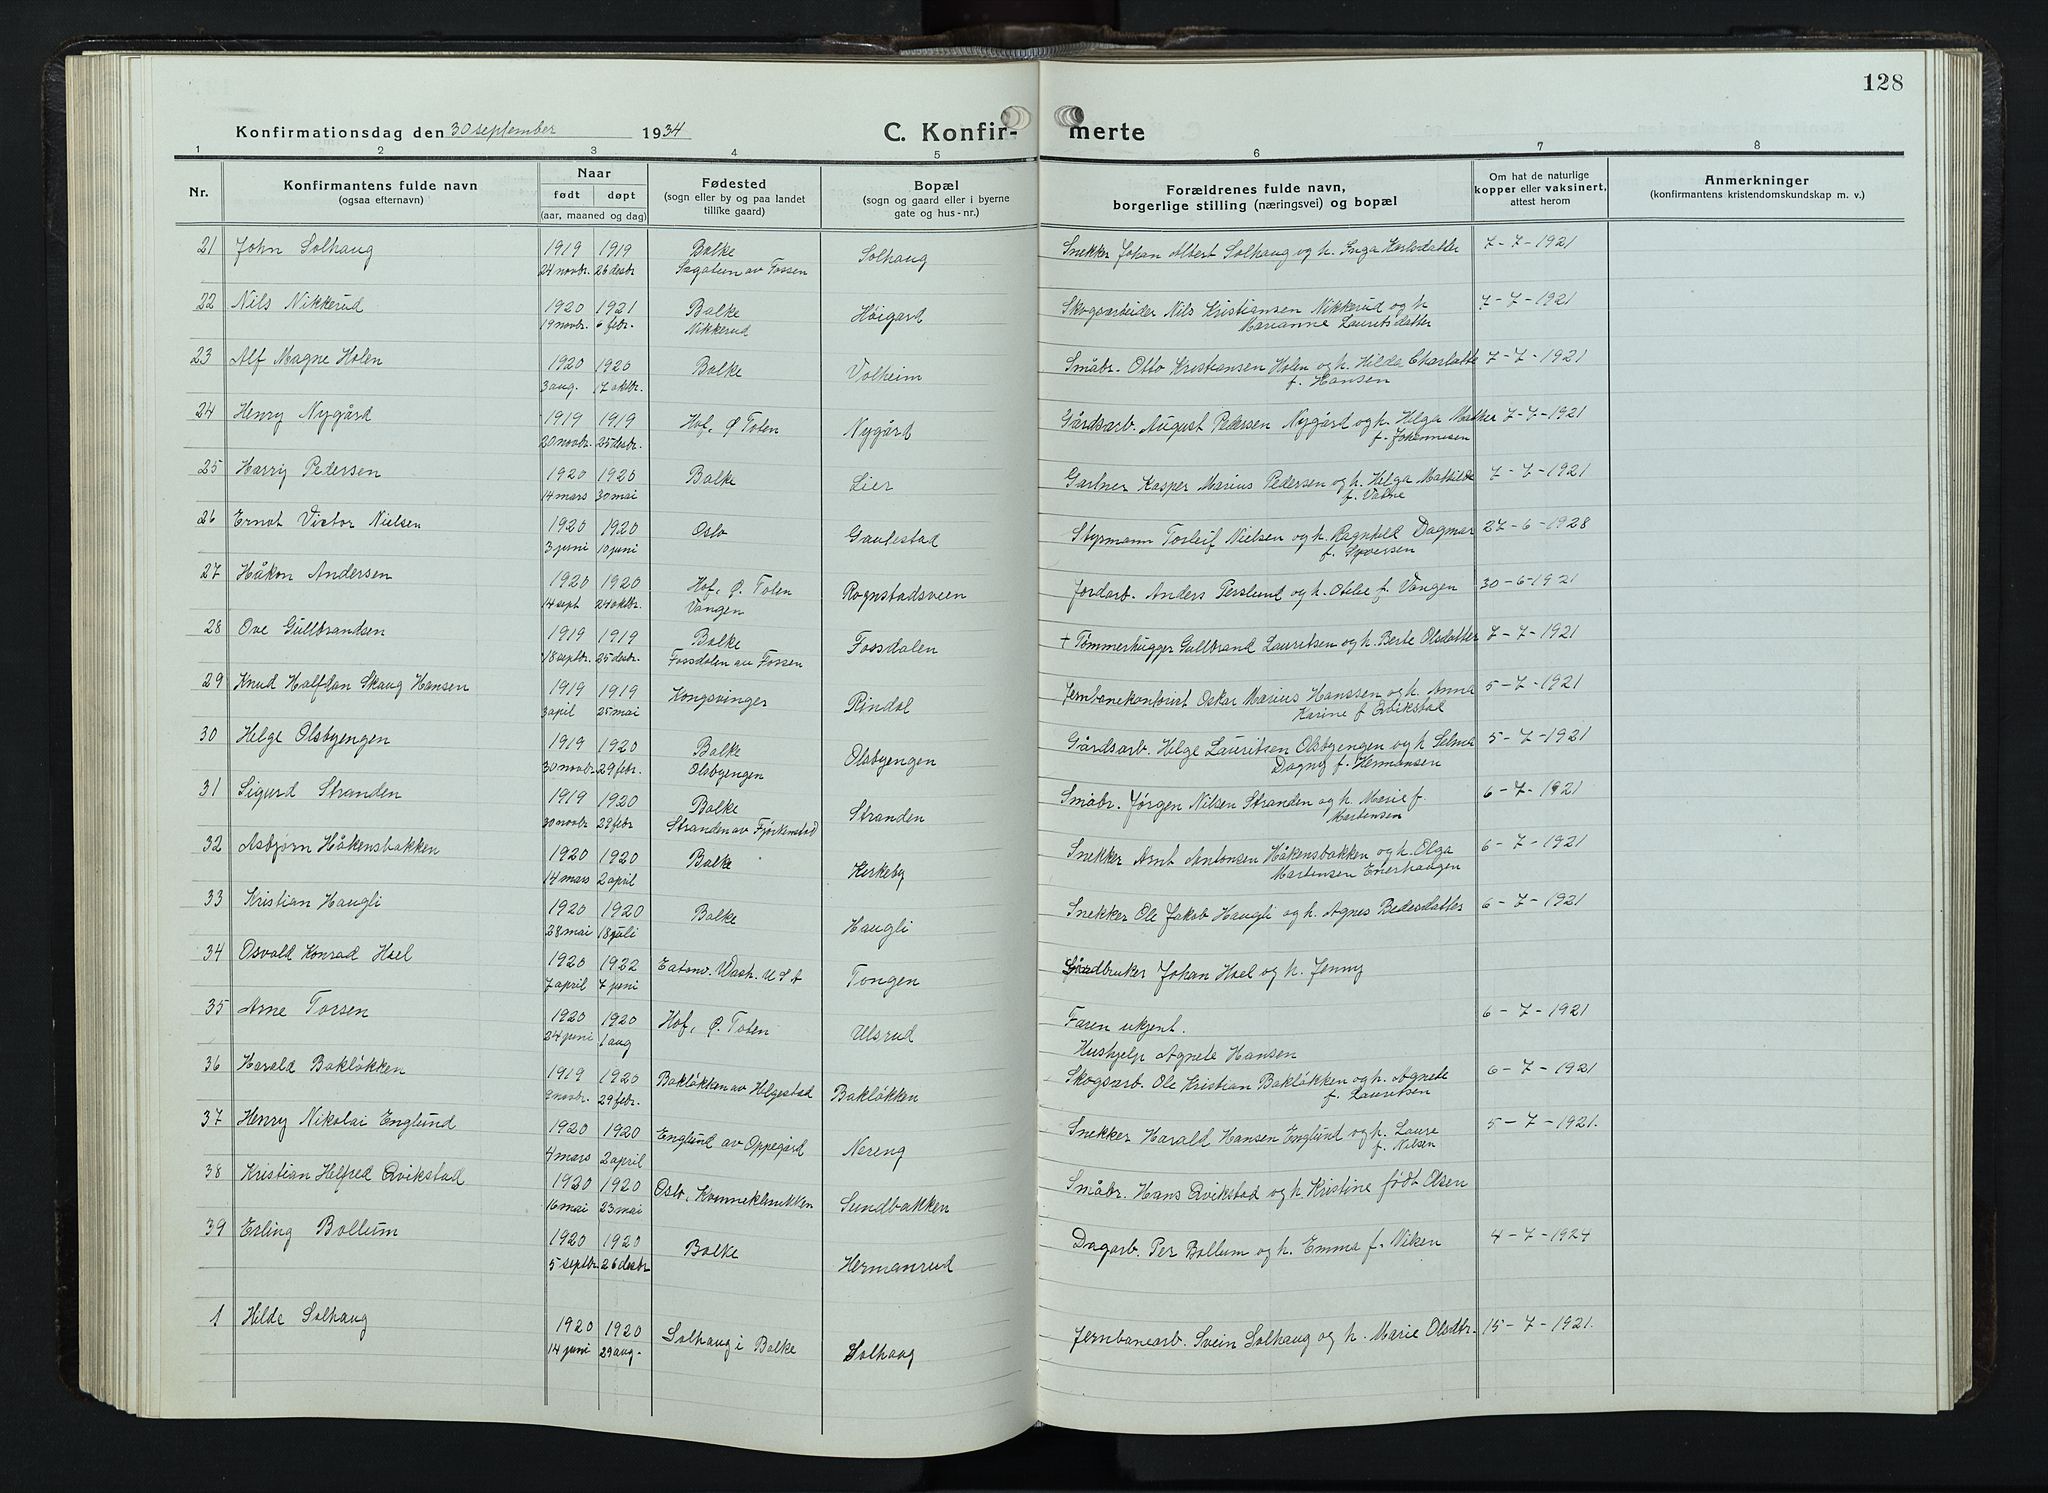 128
Konfirmationsdag den 30 september 1934 C. Konfir- merte
1 2 3 4 5 6 7 8
Nr. Konfirmantens fulde navn (ogsaa efternavn)
Naar født døpt (aar, maaned og dag)
Fødested (sogn eller by og paa landet tillike gaard)
Bopæl (sogn og gaard eller i byerne gate og hus-nr.)
Forældrenes fulde navn, borgerlige stilling (næringsvei) og bopæl
Om hat de naturlige kopper eller vaksinert, attest herom
Anmerkninger (konfirmantens kristendomskundskap m. v.)
21 John Solhaug 1919 1919 Balke Solhaug Snekker Johan Albert Solhaug og h. Inga Karlsdatter 7-7-1921
24 novbr. 26 desbr. Sagatun av Fossen
22 Nils Nikkerud 1920 1921 Balke Høigard Skogsarbeider Nils Kristiansen Nikkerud og h 7-7-1921
19 novbr. 6 febr. Nikkerud Marianne Lauritsdatter
23 Alf Magne Holen 1920 1920 Balke Volheim Småbr. Otto Kristiansen Holen og h. Hilda Charlotte 7-7-1921
3 aug. 17 oktbr. f. Hansen
24 Henry Nygård 1919 1919 Hof, Ø. Toten Nygård Gårdsarb. August Pedersen Nygård og h. Helga 7-7-1921
20 novbr. 25 desbr. f. Johannesen
25 Harry Pedersen 1920 1920 Balke Lier Gartner Kasper Marius Pedersen og h. Helga Mathilde 7-7-1921
14 mars 30 mai
26 Ernst Victor Nielsen 1920 1920 Oslo Gaulestad Styrmann Torleif Nielsen og h. Ragnhild Dagmar 27-6-1928
3 juni 10 juni f. Syversen
27 Håkon Andersen 1920 1920 Hof, Ø. Toten Rognstadsveen Jordarb. Anders Perslund og h. Otelie f. Vangen 30-6-1921
14 sept 24 oktbr. Vangen
28 Ove Gullbrandsen 1919 1919 Balke Fossdalen + Tømmerhugger Gullbrand Lauritsen og h. Berte Olsdatter 7-7-1921
18 septbr. 25 desbr. Fossdalen av Fossen
29 Knud Halfdan Skaug Hansen 1919 1919 Kongsvinger Rindal Jernbanekontorist Oskar Marius Hanssen og h. Anna 5-7-1921
3 april 25 mai Karine f. Qvikstad
30 Helge Olsbyengen 1919 1920 Balke Olsbyengen Gårdsarb. Helge Lauritsen Olsbyengen og h Selma 5-7-1921
30 novbr. 29 febr. Olsbyengen Dagny f. Hermansen
31 Sigurd Stranden 1919 1920 Balke Stranden Småbr. Jørgen Nilsen Stranden og h. Marie f. 6-7-1921
30 novbr. 29 febr Stranden av Fjørkenstad Martensen
32 Asbjørn Håkensbakken 1920 1920 Balke Kirkeby Snekker Arnt Antonsen Håkensbakken og h. Olga 6-7-1921
14 mars 2 april Martensen Enerhaugen
33 Kristian Haugli 1920 1920 Balke Haugli Snekker Ole Jakob Haugli og h. Agnes Pedersdatter 6-7-1921
28 mai 18 juli
34 Osvald Konrad Hoel 1920 1922 Eatonv. Wash. U S A Tongen Gårdbruker Johan Hoel og h. Jenny
7 april 7 juni
35 Arne Torsen 1920 1920 Hof, Ø. Toten Ulsrud Faren ukjent. 6-7-1921
24 juni 1 aug Hushjelp Agnete Hansen
36 Harald Bakløkken 1919 1920 Bakløkken av Helgestad Bakløkken Skogsarb. Ole Kristian Bakløkken og h. Agnete 6-7-1921
9 novbr. 29 febr. f. Lauritsen
37 Henry Nikolai Englund 1920 1920 Englund av Oppegård Nereng Snekker Harald Hansen Englund og h. Laura 5-7-1921.
4 mars 2 april f. Nilsen
38 Kristian Helfred Qvikstad 1920 1920 Oslo, Kvinneklinikken Sundbakken Småbr. Hans Qvikstad og h. Kristine født Olsen
16 mai 23 mai
39 Erling Bollum 1920 1920 Balke Hermanrud Dagarb. Per Bollum og h. Emma f. Viken 4-7-1924
5 septbr 26 desbr
1 Hilda Solhaug 1920 1920 Solhaug i Balke Solhaug Jernbanearb. Svein Solhaug og h. Marie Olsdtr. 15-7-1921.
14 juni 29 aug.